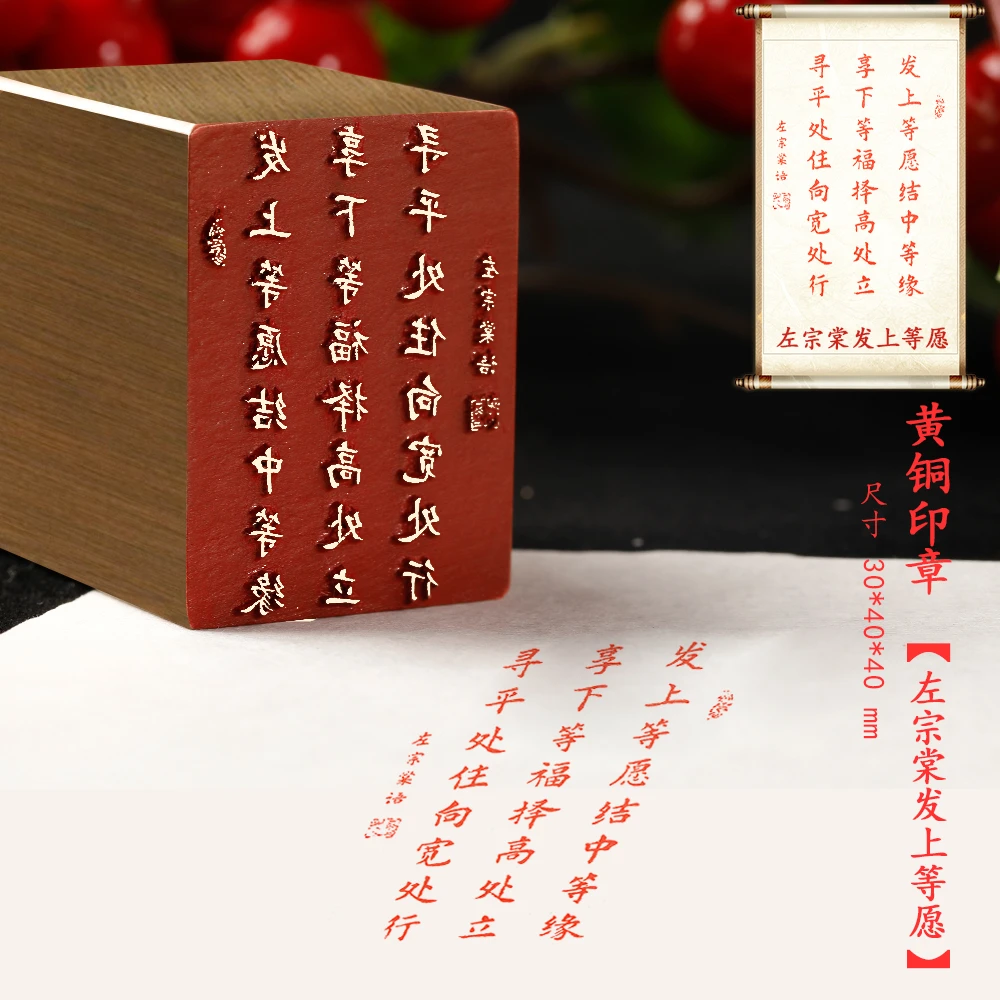 发上等愿结中等缘
享下等福择高处立
寻平处住向宽处行
左宗棠语
左宗棠发上等愿
黄铜印章
尺寸 30*40*40 mm
【左宗棠发上等愿】
发上等愿结中等缘
享下等福择高处立
寻平处住向宽处行
左宗棠语
发上等愿结中等缘
享下等福择高处立
寻平处住向宽处行
左宗棠语